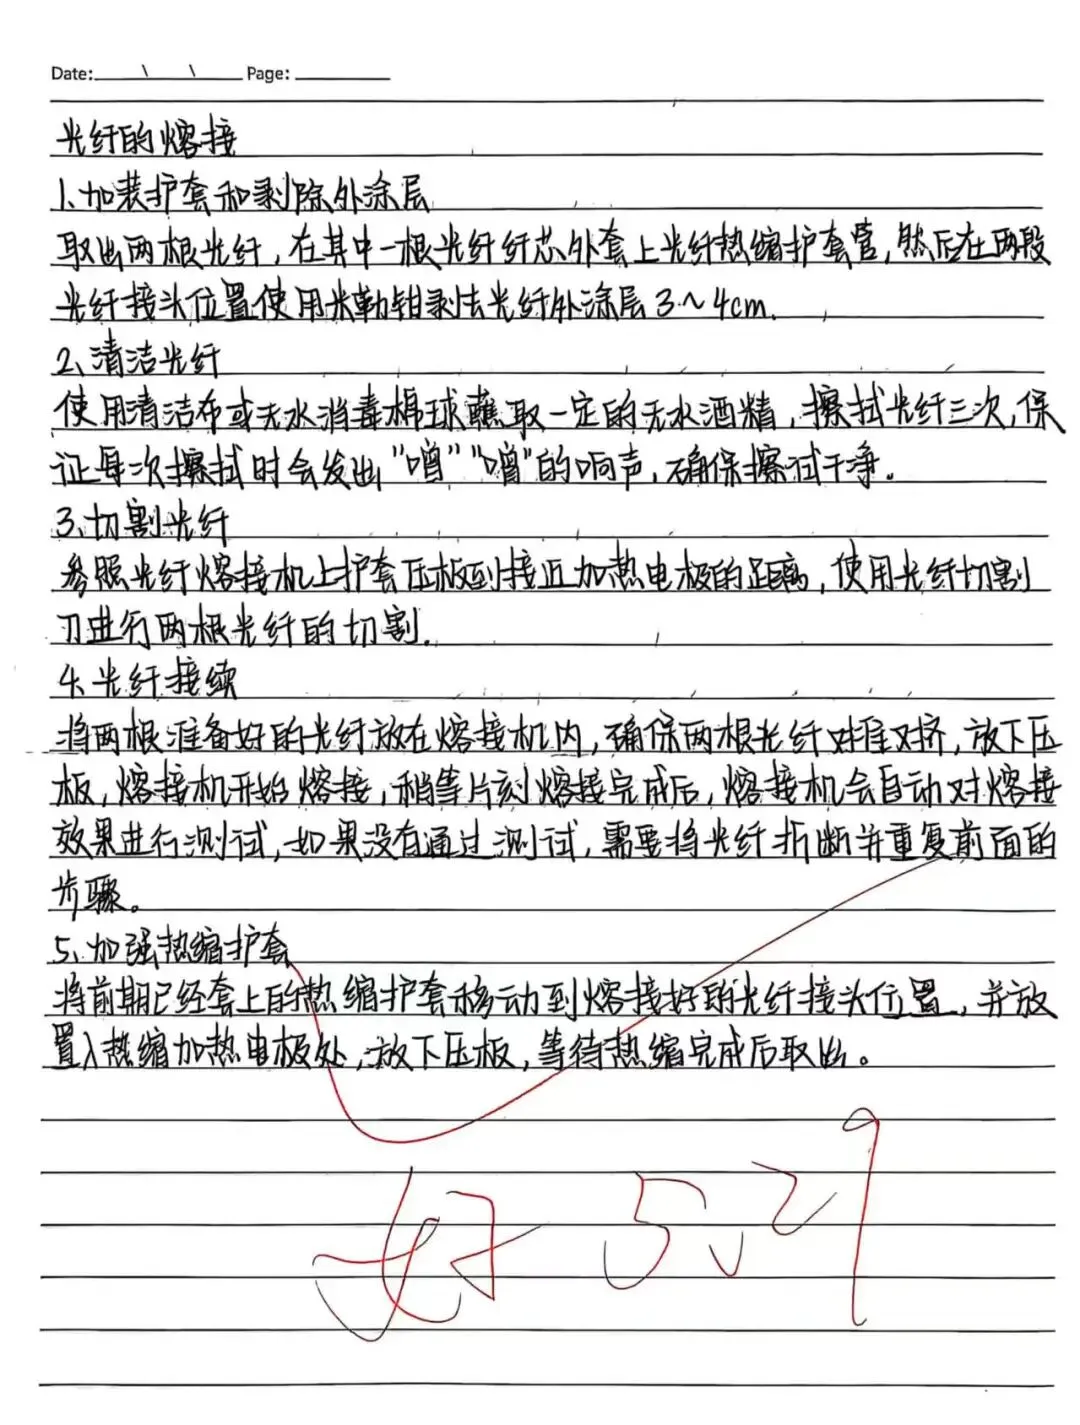 Date: \ \ Page:
光纤的熔接
1、加装护套和剥除外涂层
取出两根光纤，在其中一根光纤纤芯外套上光纤热缩护套管，然后在两段
光纤接头位置使用米勒钳剥去光纤外涂层3~4cm.
2、清洁光纤
使用清洁布或无水消毒棉球蘸取一定的无水酒精，擦拭光纤三次，保
证每次擦拭时会发出“噌”“噌”的响声，确保擦试干净。
3、切割光纤
参照光纤熔接机上护套压板到接近加热电极的距离，使用光纤切割
刀进行两根光纤的切割.
4、光纤接续
将两根准备好的光纤放在熔接机内，确保两根光纤对准对挤，放下压
板，熔接机开始熔接，稍等片刻熔接完成后，熔接机会自动对熔接
效果进行测试，如果没有通过测试，需要将光纤折断并重复前面的
步骤。
5、加强热缩护套
将前期已经套上的热缩护套移动到熔接好的光纤接头位置，并放
置入热缩加热电极处，放下压板，等待热缩完成后取出。
好 5、29